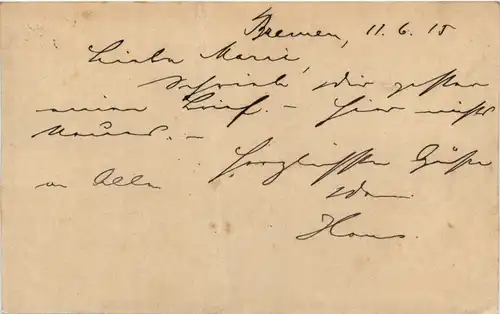 Bremen, 11.6.15
Liebe Marie,
schrieb dir gestern
einen Brief. – Hier nichts
Neues. –
Herzlichste Grüße
an Alle
Dein
Hans.